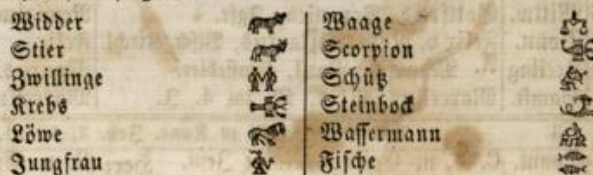 Widder
Stier
Zwillinge
Krebs
Löwe
Jungfrau
Waage
Scorpion
Schütz
Steinbock
Wassermann
Fische